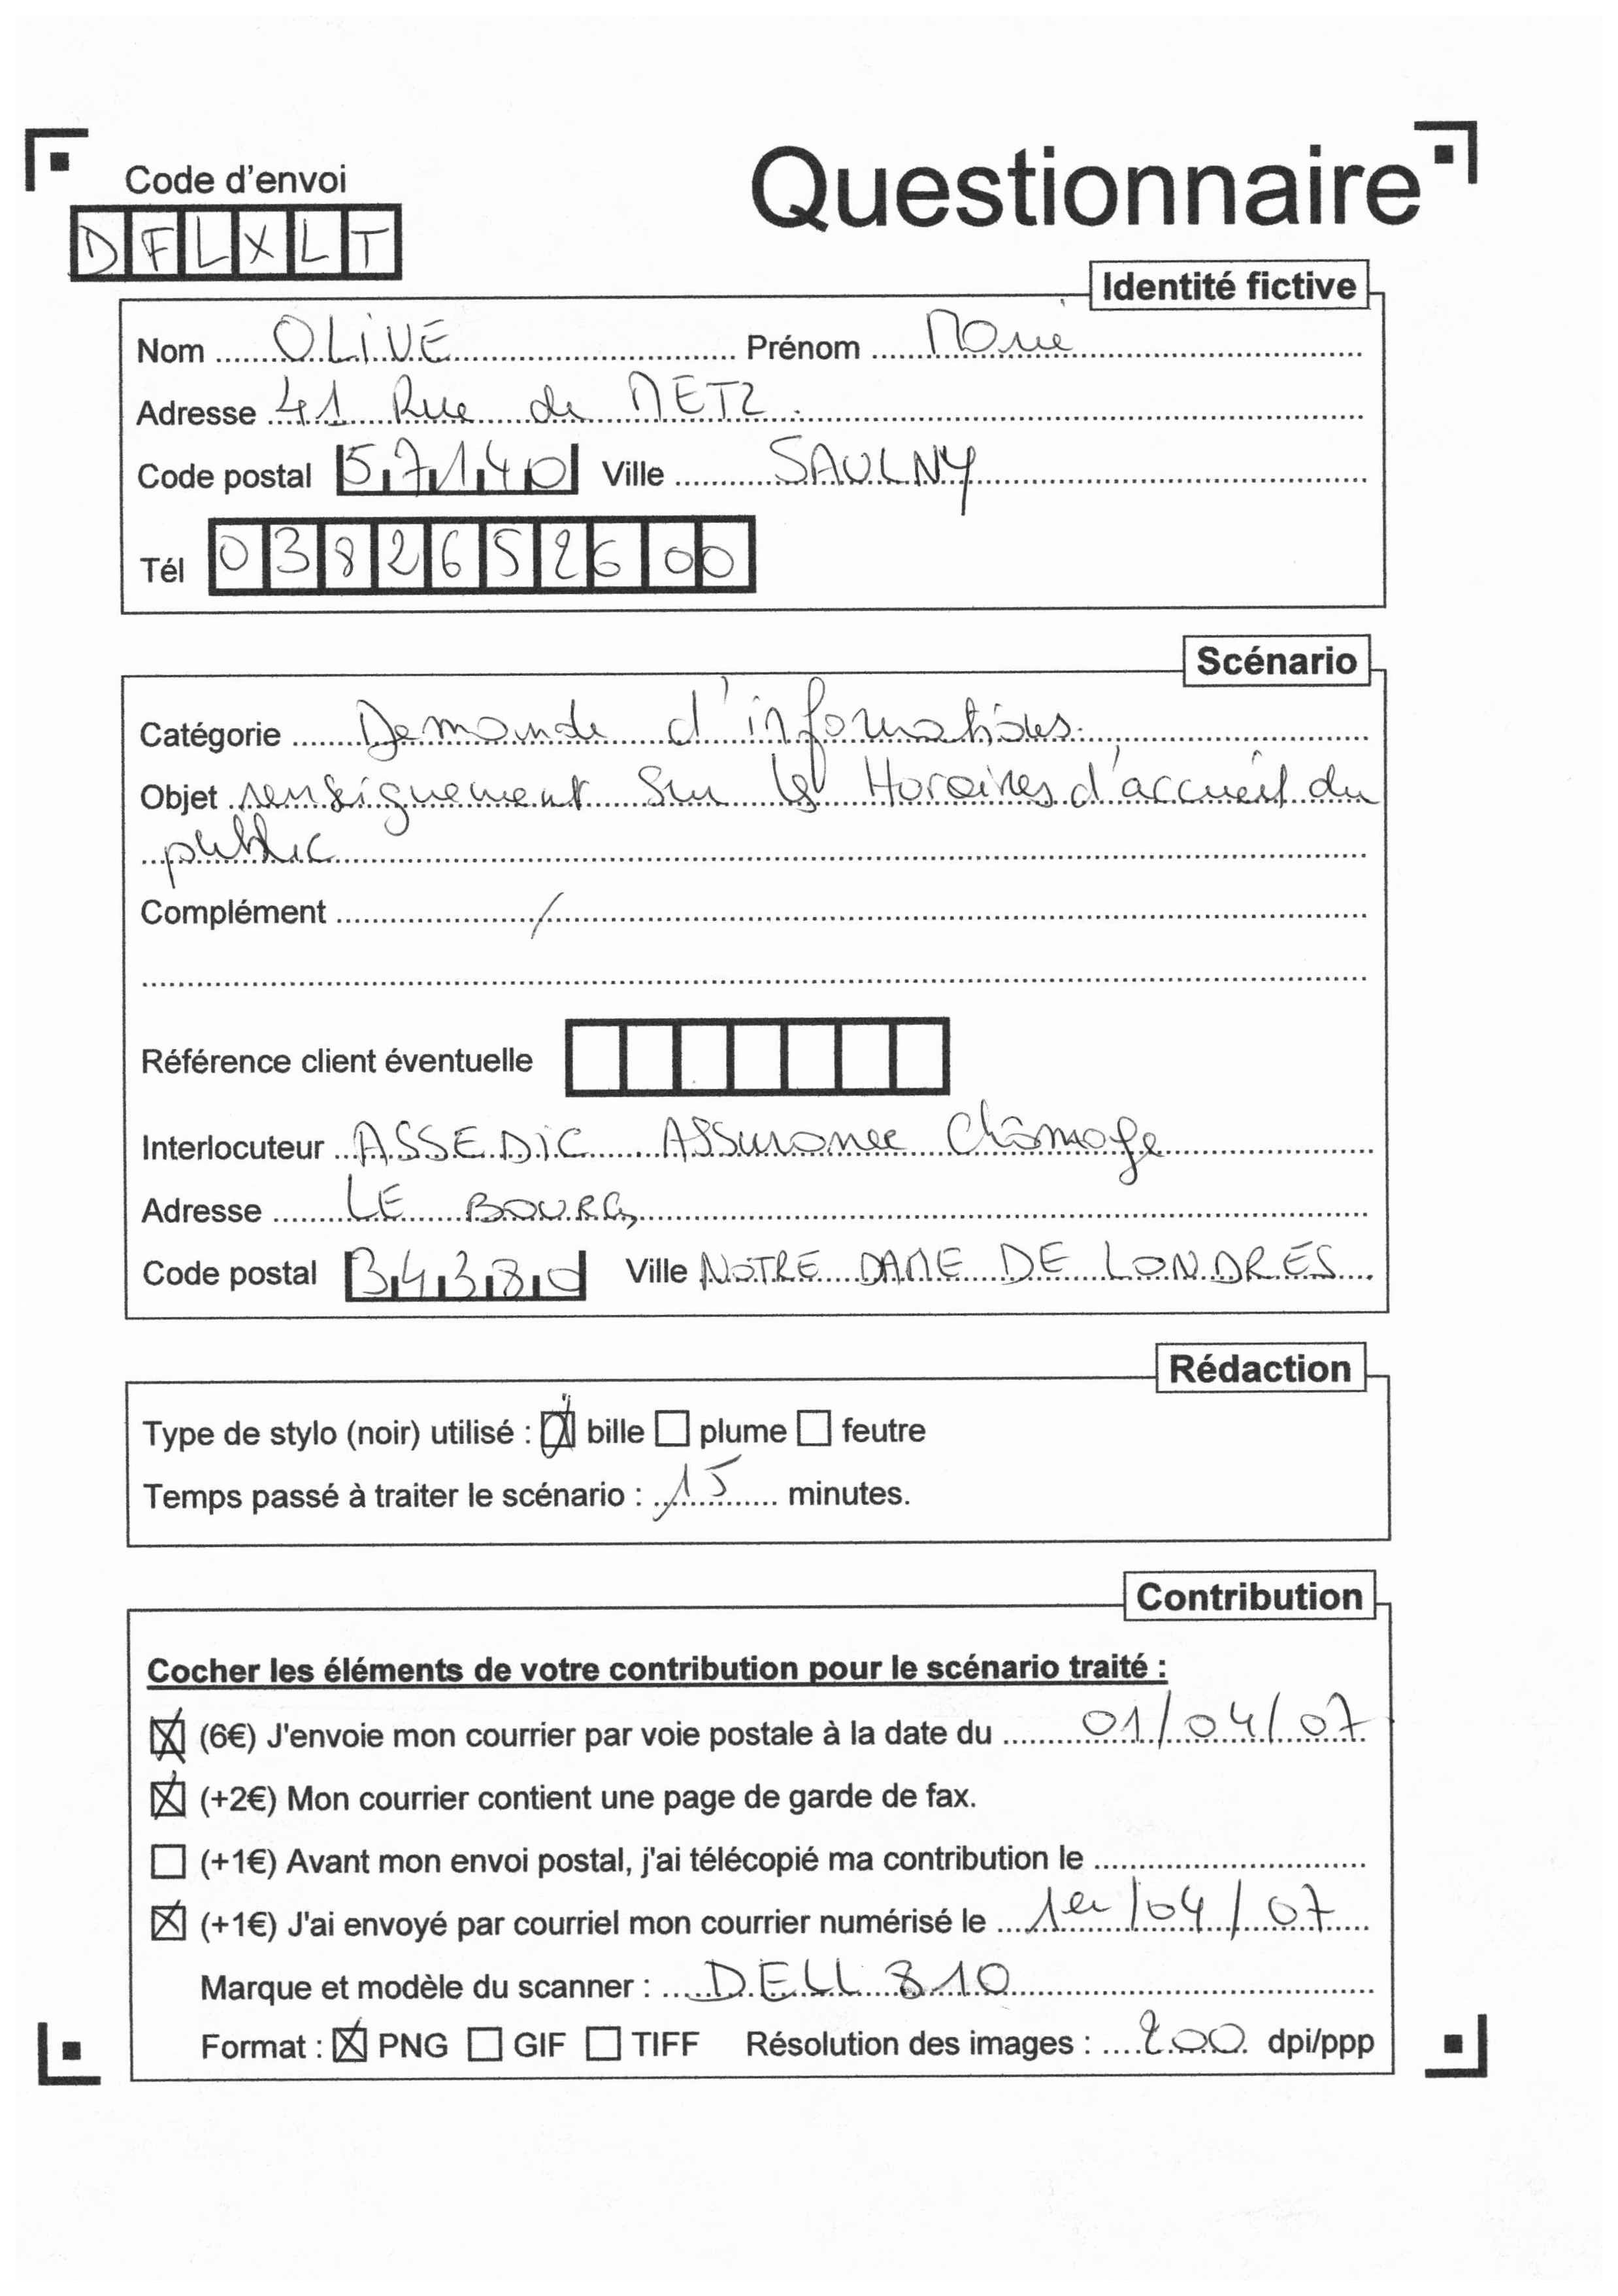 Code d'envoi
Questionnaire
DFLXLT
Identité fictive
Nom OLIVE Prénom Marie
Adresse 41 Rue de METZ.
Code postal 57140 Ville SAULNY
Tél 0382652600
Scénario
Catégorie Demande d'informations.
Objet renseignement sur les Horaires d'accueil du
public
Complément /
Référence client éventuelle
Interlocuteur ASSEDIC Assurance Chômage
Adresse LE BOURG
Code postal 34380 Ville NOTRE DAME DE LONDRES
Rédaction
Type de stylo (noir) utilisé : bille plume feutre
Temps passé à traiter le scénario : 15 minutes.
Contribution
Cocher les éléments de votre contribution pour le scénario traité :
(6€) J'envoie mon courrier par voie postale à la date du 01/04/07
(+2€) Mon courrier contient une page de garde de fax.
(+1€) Avant mon envoi postal, j'ai télécopié ma contribution le
(+1€) J'ai envoyé par courriel mon courrier numérisé le 1er/04/07
Marque et modèle du scanner : DELL 810
Format : PNG GIF TIFF Résolution des images : 200 dpi/ppp